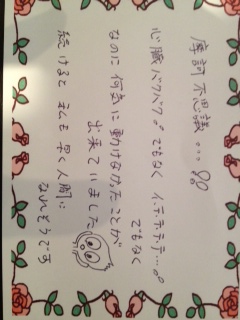 摩訶不思議…。
心臓バクバク。でもなく イテテテテ…。
でもなく
なのに 何気に動けなかったことが
出来ていました
続けると 私も 早く人間に
なれそうです